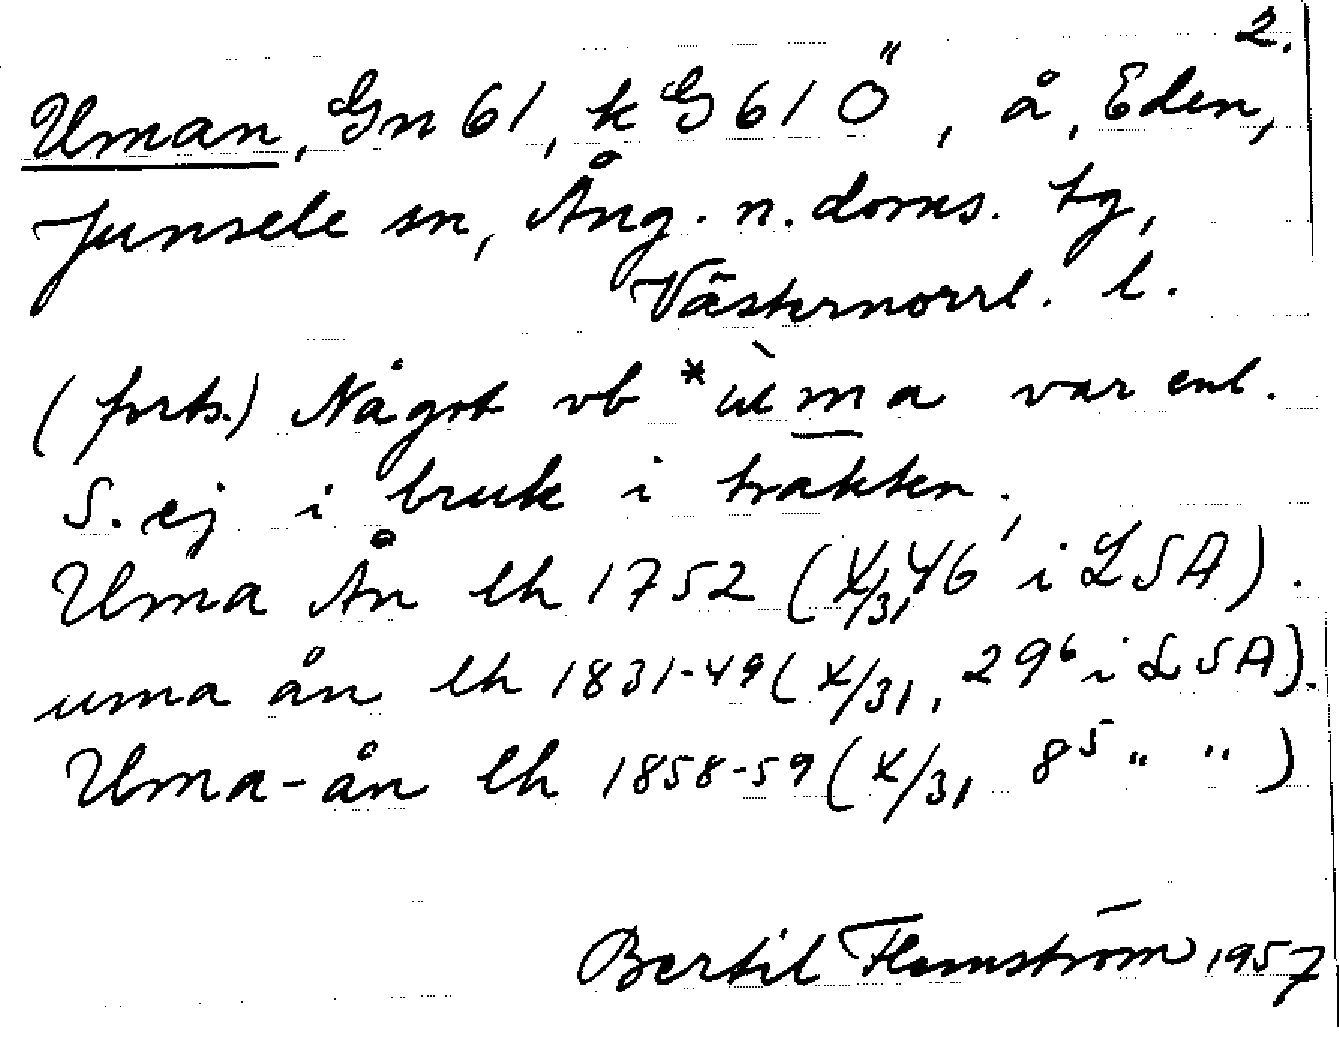 2.
Uman, Gn 61, k G 61 Ö, å, Eden,
Junsele sn, Ång. n. doms. tg,
Västernorrl. l.
(forts.) Något vb *ùma var enl.
S. ej i bruk i trakten.
Uma Ån lh 1752 (X/31, 46 i LSA).
uma ån lh 1831-49 (X/31, 29⁶ i LSA).
Uma-ån lh 1858-59 (X/31, 8⁵ " ")
Bertil Flemström 1957